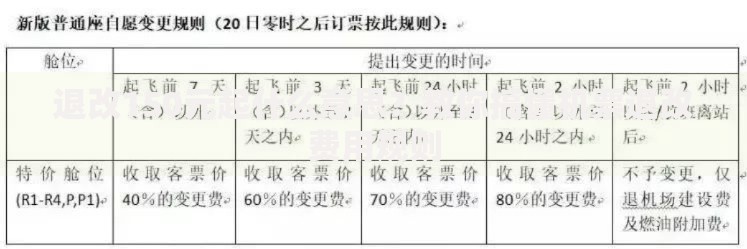 新版普通座自愿变更规则（20 日零时之后订票按此规则）：
舱位
提出变更的时间
起飞前 7 天
（含）以外
起飞前 3 天
（含）
天之内
起飞前 24 小时
（含）以外至
天之内
起飞前 2 小时
（含）以外
24 小时之内
起飞前 2 小时
航班离站
后
特价舱位
(R1-R4,P,P1)
收取客票价
40%的变更费
收取客票价
60%的变更费
收取客票价
70%的变更费
收取客票价
80%的变更费
不予变更，仅
退机场建设费
及燃油附加费
费用规则